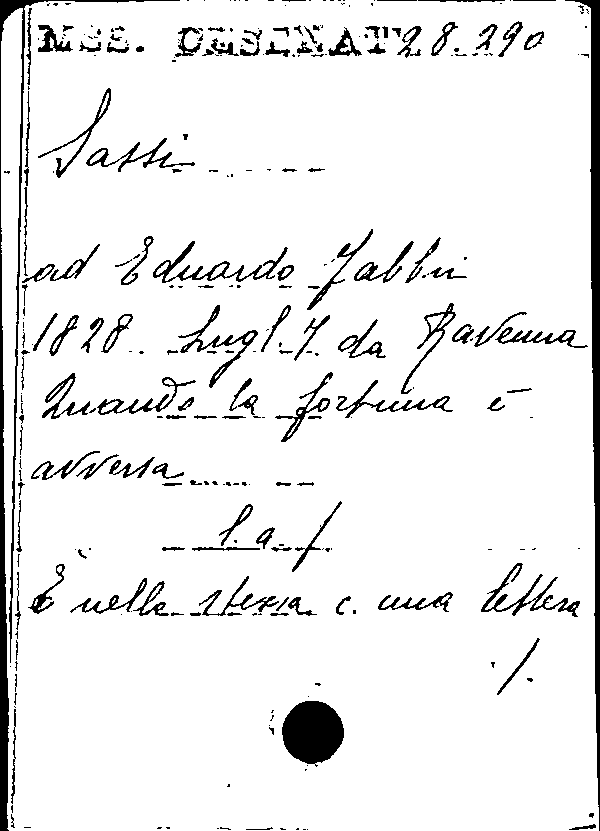 MSS. CESENAT 28.290
Sassi
ad Eduardo Fabbri
1828. Lugl. 7 da Ravenna
Quando la fortuna è
avversa
l. a. f
È nella stessa c. una lettera
./.